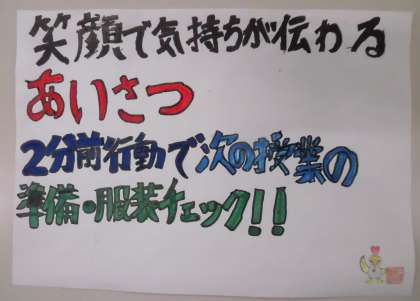 笑顔で気持ちが伝わる
あいさつ
2分前行動で次の授業の
準備・服装チェック!!